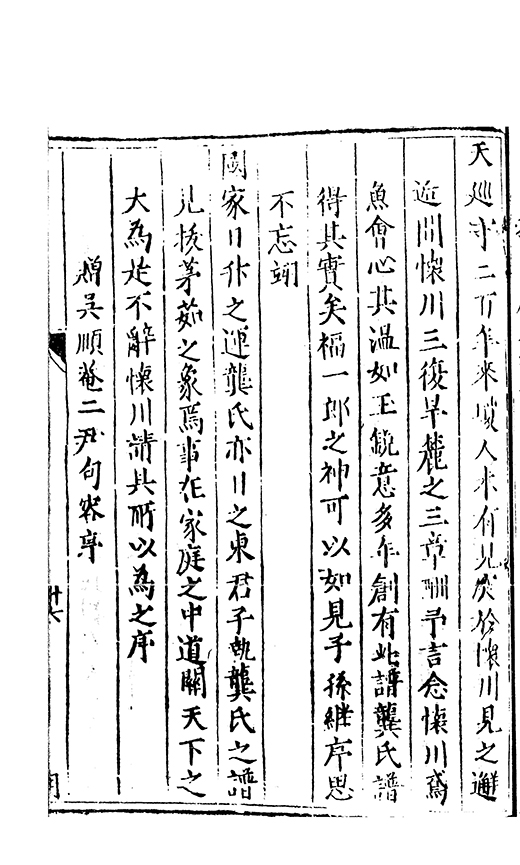 天巡守二百年來嘆人未有見於懷川見之邂
近問懷川三復旱麓之三章酬予言念懷川鳶
魚會心其溫如玉鏡意多年創有此譜龔氏譜
得其實矣福一郎之神可以如見子孫継序思
不忘翊
國家日升之運龔氏亦日之東君子執龔氏之譜
凡拔茅茹之象焉事在家庭之中道關天下之
大為是不辭懷川請具所以為之序
贈吳順菴二尹句容序
十六